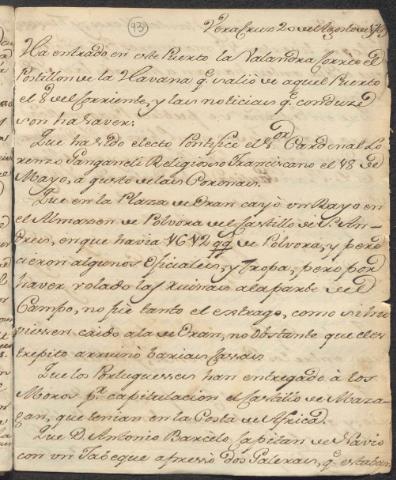 93
VeraCruz 20 de Agosto de
Ha entrado en este Puerto la Valandra Correo el
Postillon de la Havana q.e salió de aquel Puerto
el 8 del Corriente, y las noticias q.e conduce
son haver:
Que ha sido electo Pontifice el S.or Cardenal Lo
renzo Ganganeli Religioso Franciscano el 18 de
Mayo, a gusto de las Coronas.
Que en la Plaza de Oran cayó un Rayo en
el Almazen de Polvora del Castillo de S.n An
drés, en que havia 1612 qq de Polvora, y pere
cieron algunos Oficiales, y Tropa, pero por
haver volado las Ruinas a la parte del
Campo, no fue tanto el estrago, como si hu
viesen caido a la de Oran, no obstante que el es
trepito arruinó barias Cassas
Que los Portuguesses han entregado à los
Moros p.r capitulacion el Castillo de Maza
gan, que tenian en la Costa de Africa
Que D. Antonio Barcelo Capitan de Navio
con un Jabeque apressó dos Galeras, q.e estaban